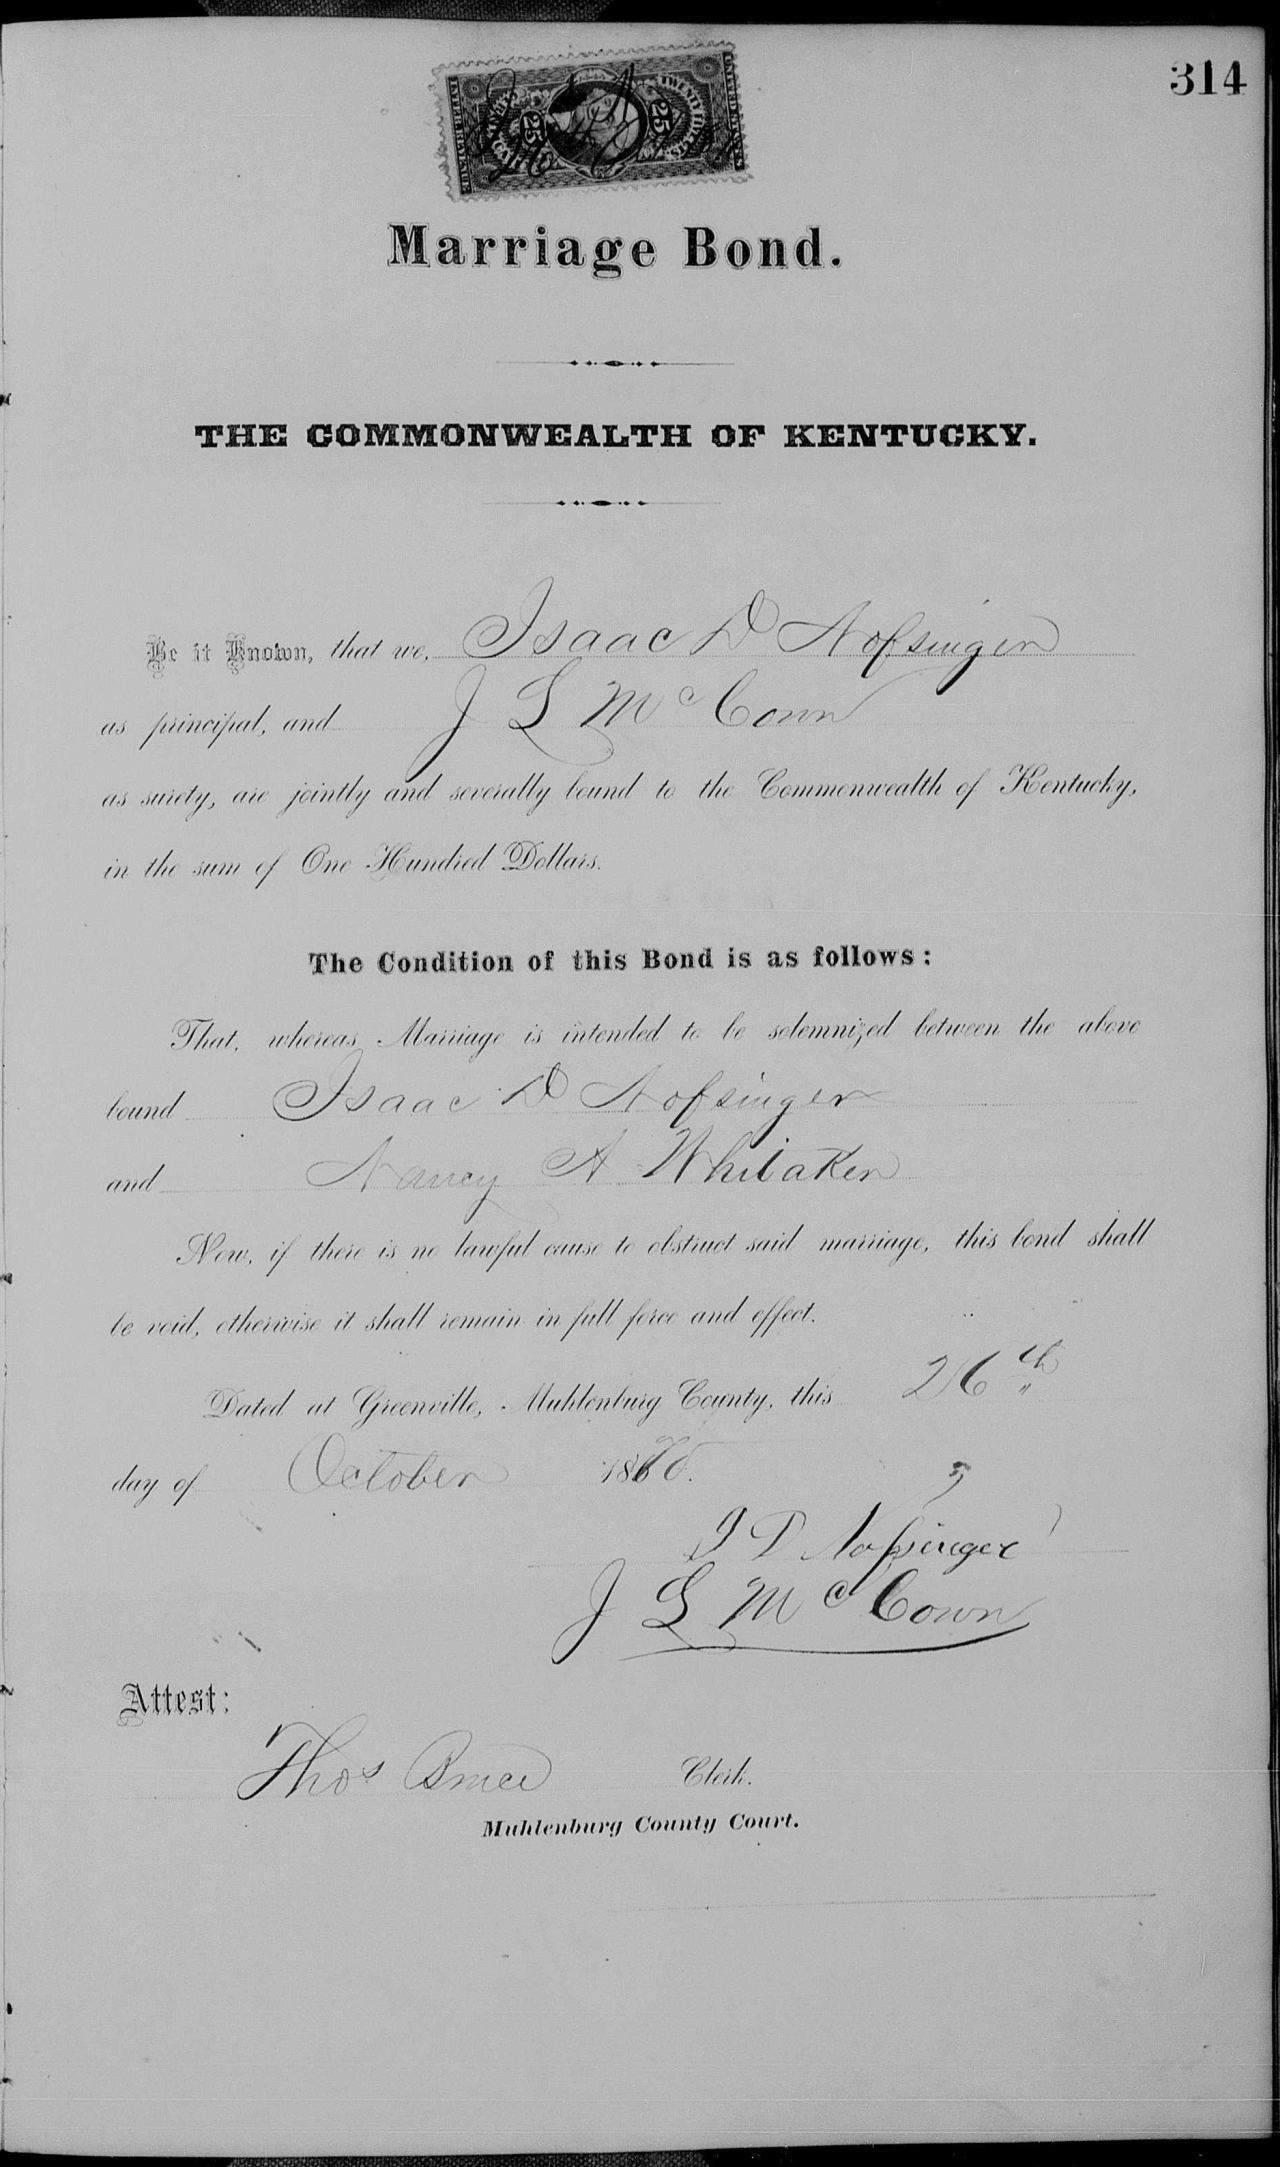 314
INTER. REVENUE
TWENTY FIVE CTS.
25
25
UNITED STATES
Marriage Bond.
THE COMMONWEALTH OF KENTUCKY.
Be it Known, that we, Isaac D Nofsinger
as principal, and J L McCown
as surety, are jointly and severally bound to the Commonwealth of Kentucky,
in the sum of One Hundred Dollars.
The Condition of this Bond is as follows:
That, whereas Marriage is intended to be solemnized between the above
bound Isaac D Nofsinger
and Nancy A Whitaker
Now, if there is no lawful cause to obstruct said marriage, this bond shall
be void, otherwise it shall remain in full force and effect.
Dated at Greenville, Muhlenburg County, this 26th
day of October 1870.
I D Nofsinger
J L McCown
Attest:
Thos Bruce Clerk.
Muhlenburg County Court.